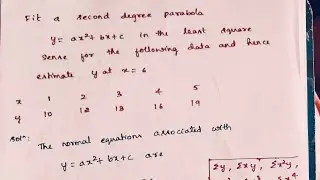 Fit a second degree parabola
y = ax² + bx + c in the least square
sense for the following data and hence
estimate y at x = 6
x 1 2 3 4 5
y 10 12 13 16 19
Solⁿ: The normal equations associated with
y = ax² + bx + c are
Σy, Σxy, Σx²y,